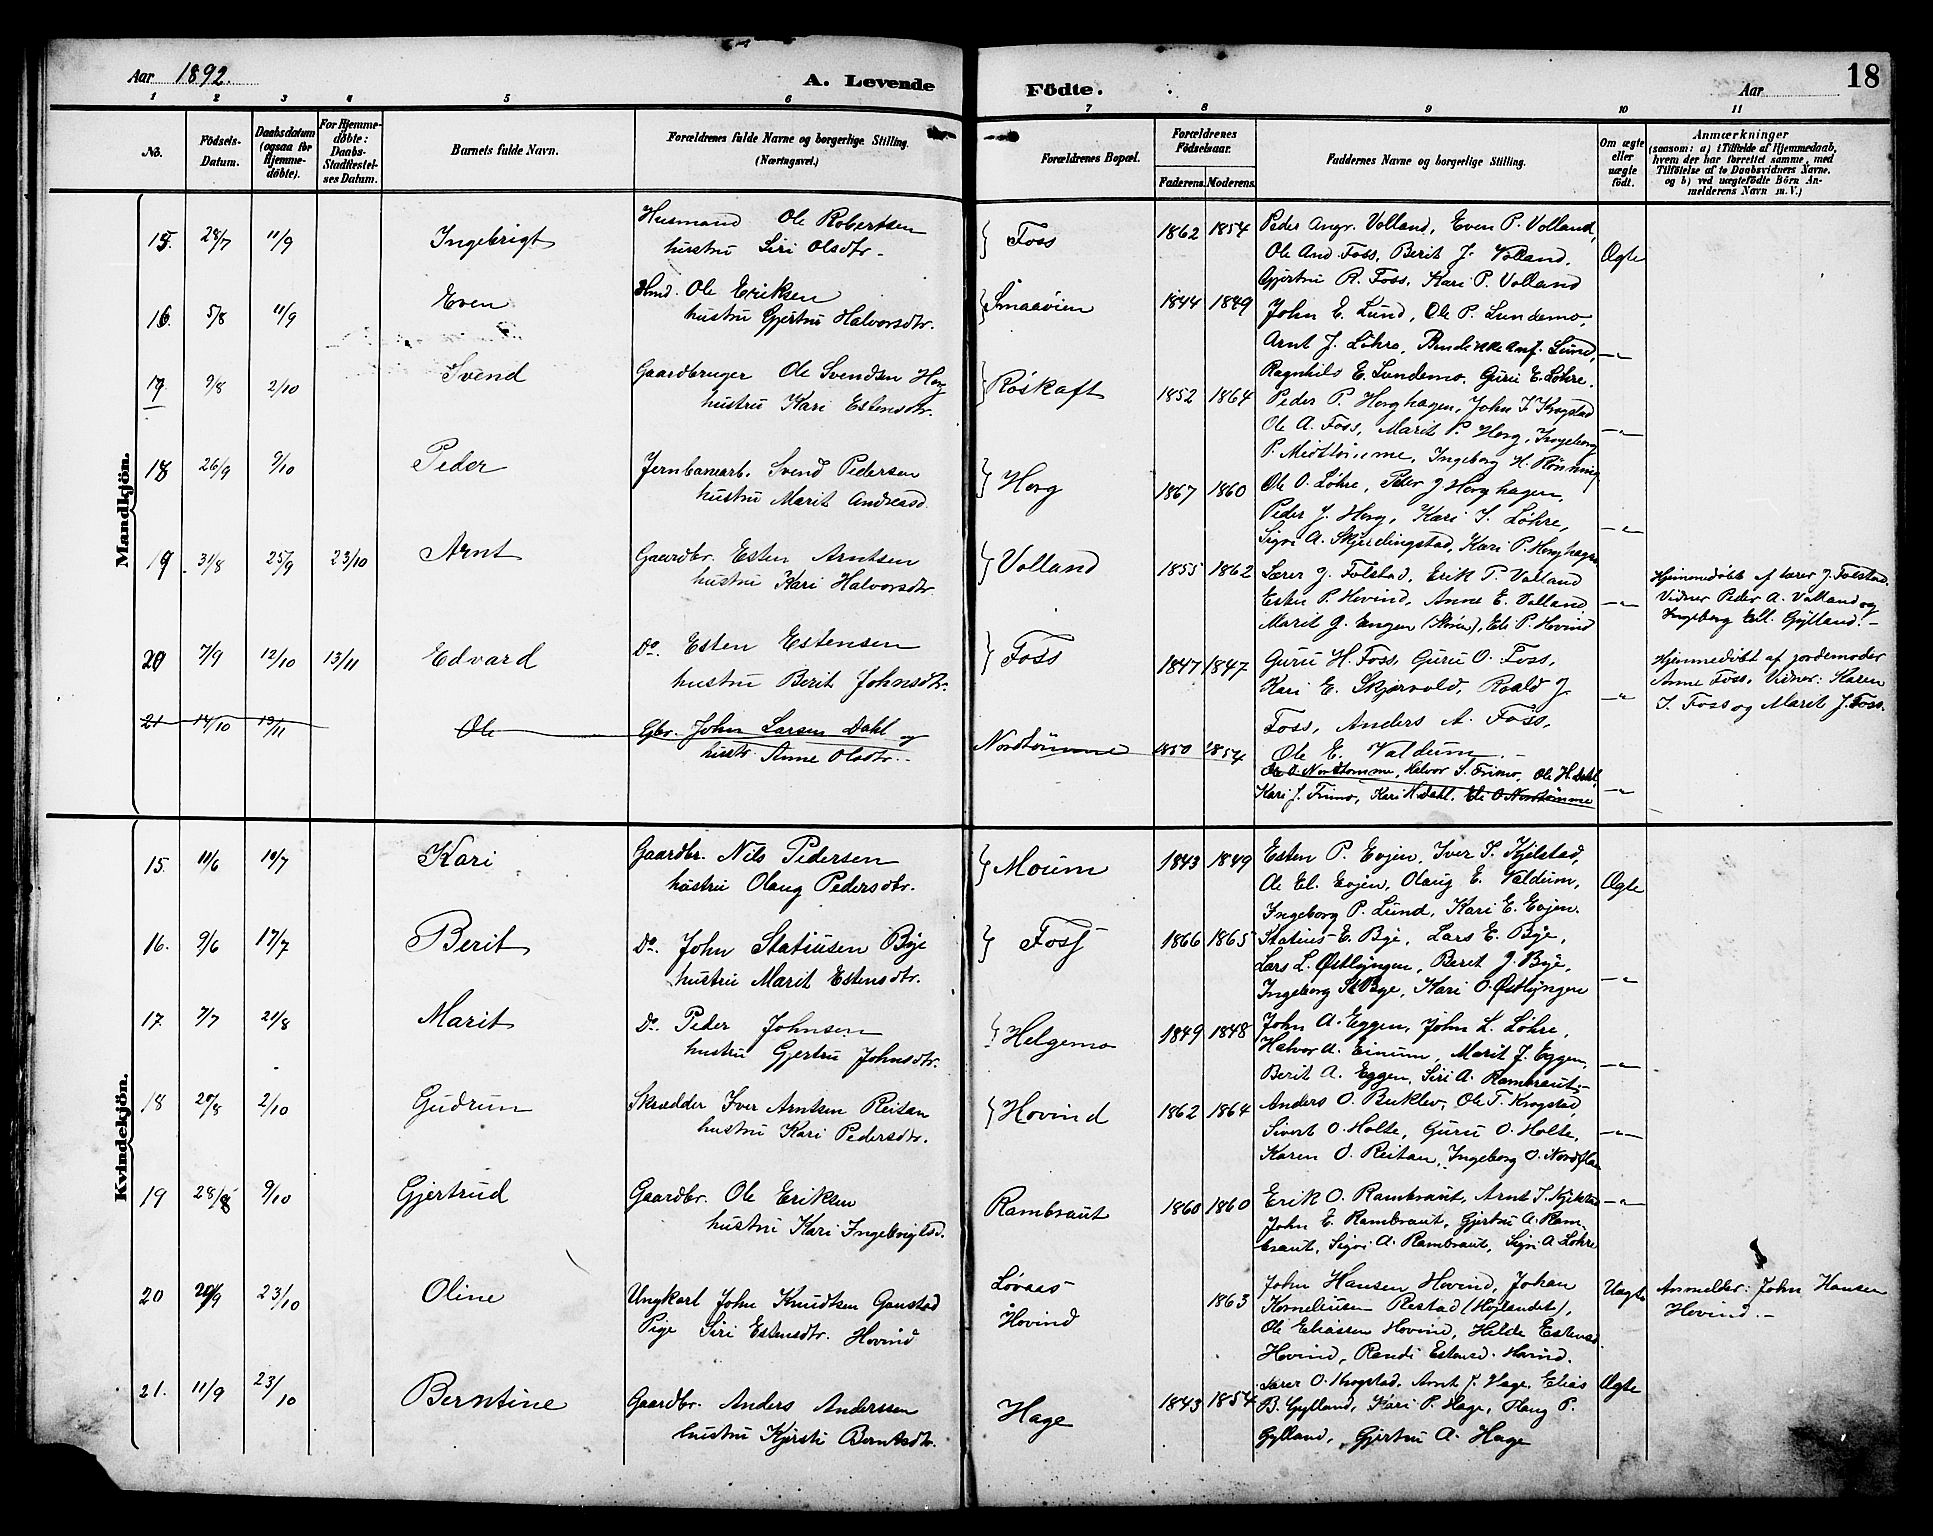 Aar 1892.
A. Levende Födte.
Aar
18
1 2 3 4 5 6 7 8 9 10 11
No.
Födsels-
Datum.
Daabsdatum
(ogsaa for
Hjemme-
döbte).
For Hjemme-
döbte:
Daabs-
Stadfæstel-
ses Datum.
Barnets fulde Navn.
Forældrenes fulde Navne og borgerlige Stilling.
(Næringsvei.)
Forældrenes Bopæl.
Forældrenes
Födselsaar.
Faderens. Moderens.
Faddernes Navne og borgerlige Stilling.
Om ægte
eller
uægte
födt.
Anmærkninger
(saasom: a) i Tilfælde af Hjemmedaab,
hvem der har forrettet samme, med
Tilföielse af to Daabsvidners Navne.
og b) ved uægtefödte Börn An-
melderens Navn m. V.)
Mandkjön.
15. 28/7 11/9 Ingebrigt
Husmand Ole Robertsen
hustru Siri Olsdtr.
Foss 1862 1854
Peder Angr. Volland, Even P. Volland,
Ole And. Foss, Berit J. Volland,
Gjertru R. Foss, Kari P. Volland
Ægte
16. 5/8 11/9 Even
Hmd. Ole Eriksen
hustru Gjertru Halvorsdtr.
Smaaøien 1844 1849
John E. Lund, Ole P. Lundemo,
Arnt J. Løhre, Bendikke Anf. Lund,
Ragnhild E. Lundemo, Guru E. Løhre.
—"—
17 9/8 2/10 Svend
Gaardbruger Ole Svendsen Horg
hustru Kari Estensdtr.
Röskaft 1852 1864
Peder P. Horghagen, John I. Krogstad
Ole A. Foss, Marit P. Horg, Ingeborg
P. Midttömme, Ingeborg H. Rönning
—"—
18 26/9 9/10 Peder
Jernbanearb. Svend Pedersen
hustru Marit Andreasd.
Horg 1867 1860
Ole O. Løhre, Peter J. Horghagen,
Peder J. Horg, Kari I. Løhre,
Sigri A. Skjerdingstad, Kari P. Horghagen
—"—
19 31/8 25/9 23/10 Arnt
Gaardbr. Esten Arntsen
hustru Kari Halvorsdtr.
Volland 1855 1862
Lærer J. Folstad, Erik P. Volland
Esten P. Hovind, Anne E. Volland,
Marit G. Engen (Støren), Eli P. Hovind
—"—
Hjemmedøbt af lærer J. Folstad.
Vidner Peder A. Volland og
Ingeborg Ell. Gylland.—
20 7/9 12/10 13/11 Edvard
Do. Esten Estensen
hustru Berit Johnsdtr.
Foss 1847 1847
Guru H. Foss, Guru O. Foss,
Kari E. Skjervold, Roald J.
Foss, Anders A. Foss,
Ole E. Valdum —
"
Hjemmedøbt af jordemoder
Anne Foss, Vidner: Karen
I. Foss og Marit J. Foss.
21 14/10 13/11 Ole
Gbr. John Larsen Dahl og
hustr. Anne Olsdtr.
Nordtömme 1850 1854
Ole O. Nordtömme, Halvor S. Frimo, Ole H. Dahl,
Kari J. Frimo, Kari H. Dahl, Eli O. Nordtömme
—"—
Kvindekjön.
15. 11/6 10/7 Kari
Gaardbr. Nils Pedersen
hustru Olaug Pedersdtr.
Moum 1843 1849
Esten P. Evjen, Iver T. Kjelstad,
Ole El. Evjen, Olaug E. Valdum,
Ingeborg P. Lund, Kari E. Evjen.
Ægte
16. 9/6 17/7 Berit
Do. John Statiusen Bye
hustru Marit Estensdtr.
Foss 1866 1865
Statius E. Bye, Lars E. Bye,
Lars L. Østlyngen, Beret J. Bye,
Ingeborg St. Bye, Kari O. Østlyngen
—"—
17. 7/7 21/8 Marit
Do. Peder Johnsen
hustru Gjertru Johnsdtr.
Helgemo 1849 1848
John A. Eggen, John L. Löhre,
Halvor A. Einum, Marit J. Eggen,
Berit A. Eggen, Siri A. Rambraut.—
—"—
18 20/8 2/10 Gudrun
Skrædder Iver Arntsen Reitan
hustru Kari Pedersdtr.
Hovind 1862 1864
Anders O. Buklev, Ole T. Krogstad,
Sivert O. Holte, Guru O. Holte,
Karen O. Reitan, Ingeborg O. Nordflaa
—"—
19 28/8 9/10 Gjertrud
Gaardbr. Ole Eriksen
hustru Kari Ingebrigtsd.
Rambraut 1860 1860
Erik O. Rambraut, Arnt I. Kjelstad
John E. Rambraut, Gjertru A. Ram-
braut, Sigri A. Rambraut, Sigri A Løhre
—"—
20 20/9 23/10 Oline
Ungkarl John Knudtsen Ganstad
Pige Siri Estensdtr. Hovind
Løvaas
Hovind
1863
John Hansen Hovind, Johan
Korneliusen Restad (Høilandet),
Ole Eliassen Hovind, Hilde Estensd.
Hovind, Randi Estensd. Hovind.
Uægte
Anmelder: John Hansen
Hovind.—
21. 11/9 23/10 Berntine
Gaardbr. Anders Anderssen
hustru Kjersti Berntsdtr.
Hage 1843 1854
Lærer O. Krogstad, Arnt J. Hage, Elias
B. Gylland, Kari P. Hage, Haug P.
Gylland, Gjertru A. Hage
Ægte